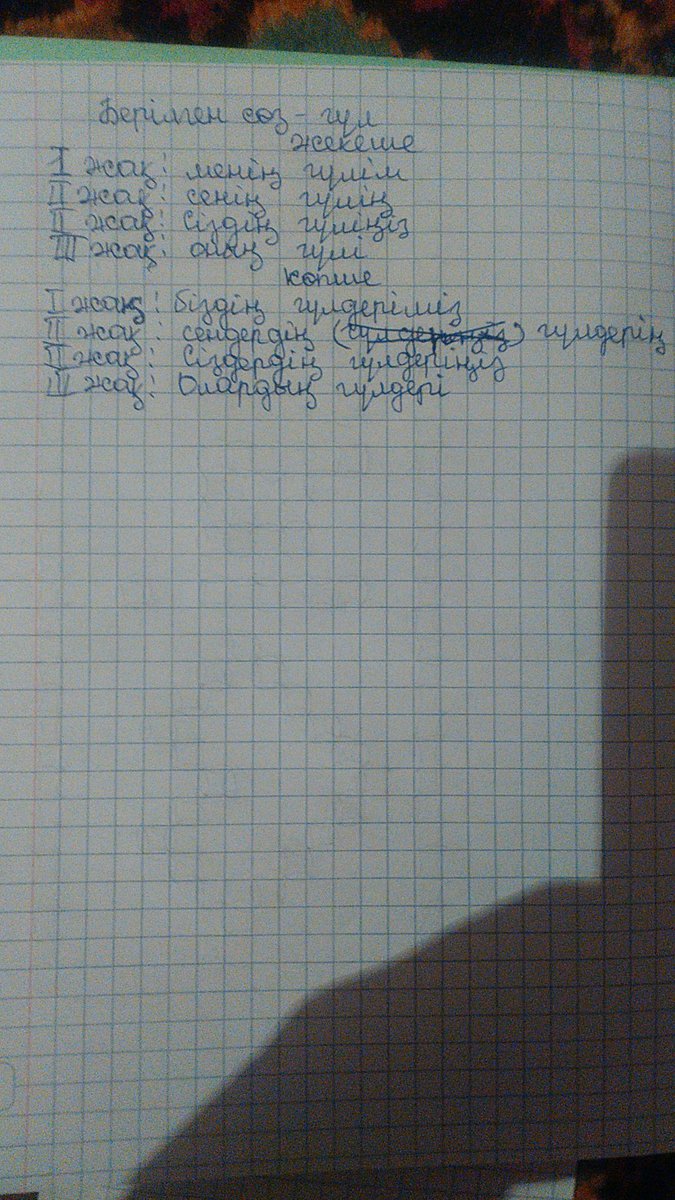 Берілген сөз - гүл
жекеше
I жақ: менің гүлім
II жақ: сенің гүлің
II жақ: Сіздің гүліңіз
III жақ: оның гүлі
көпше
I жақ: біздің гүлдеріміз
II жақ: сендердің () гүлдерің
II жақ: Сіздердің гүлдеріңіз
III жақ: Олардың гүлдері